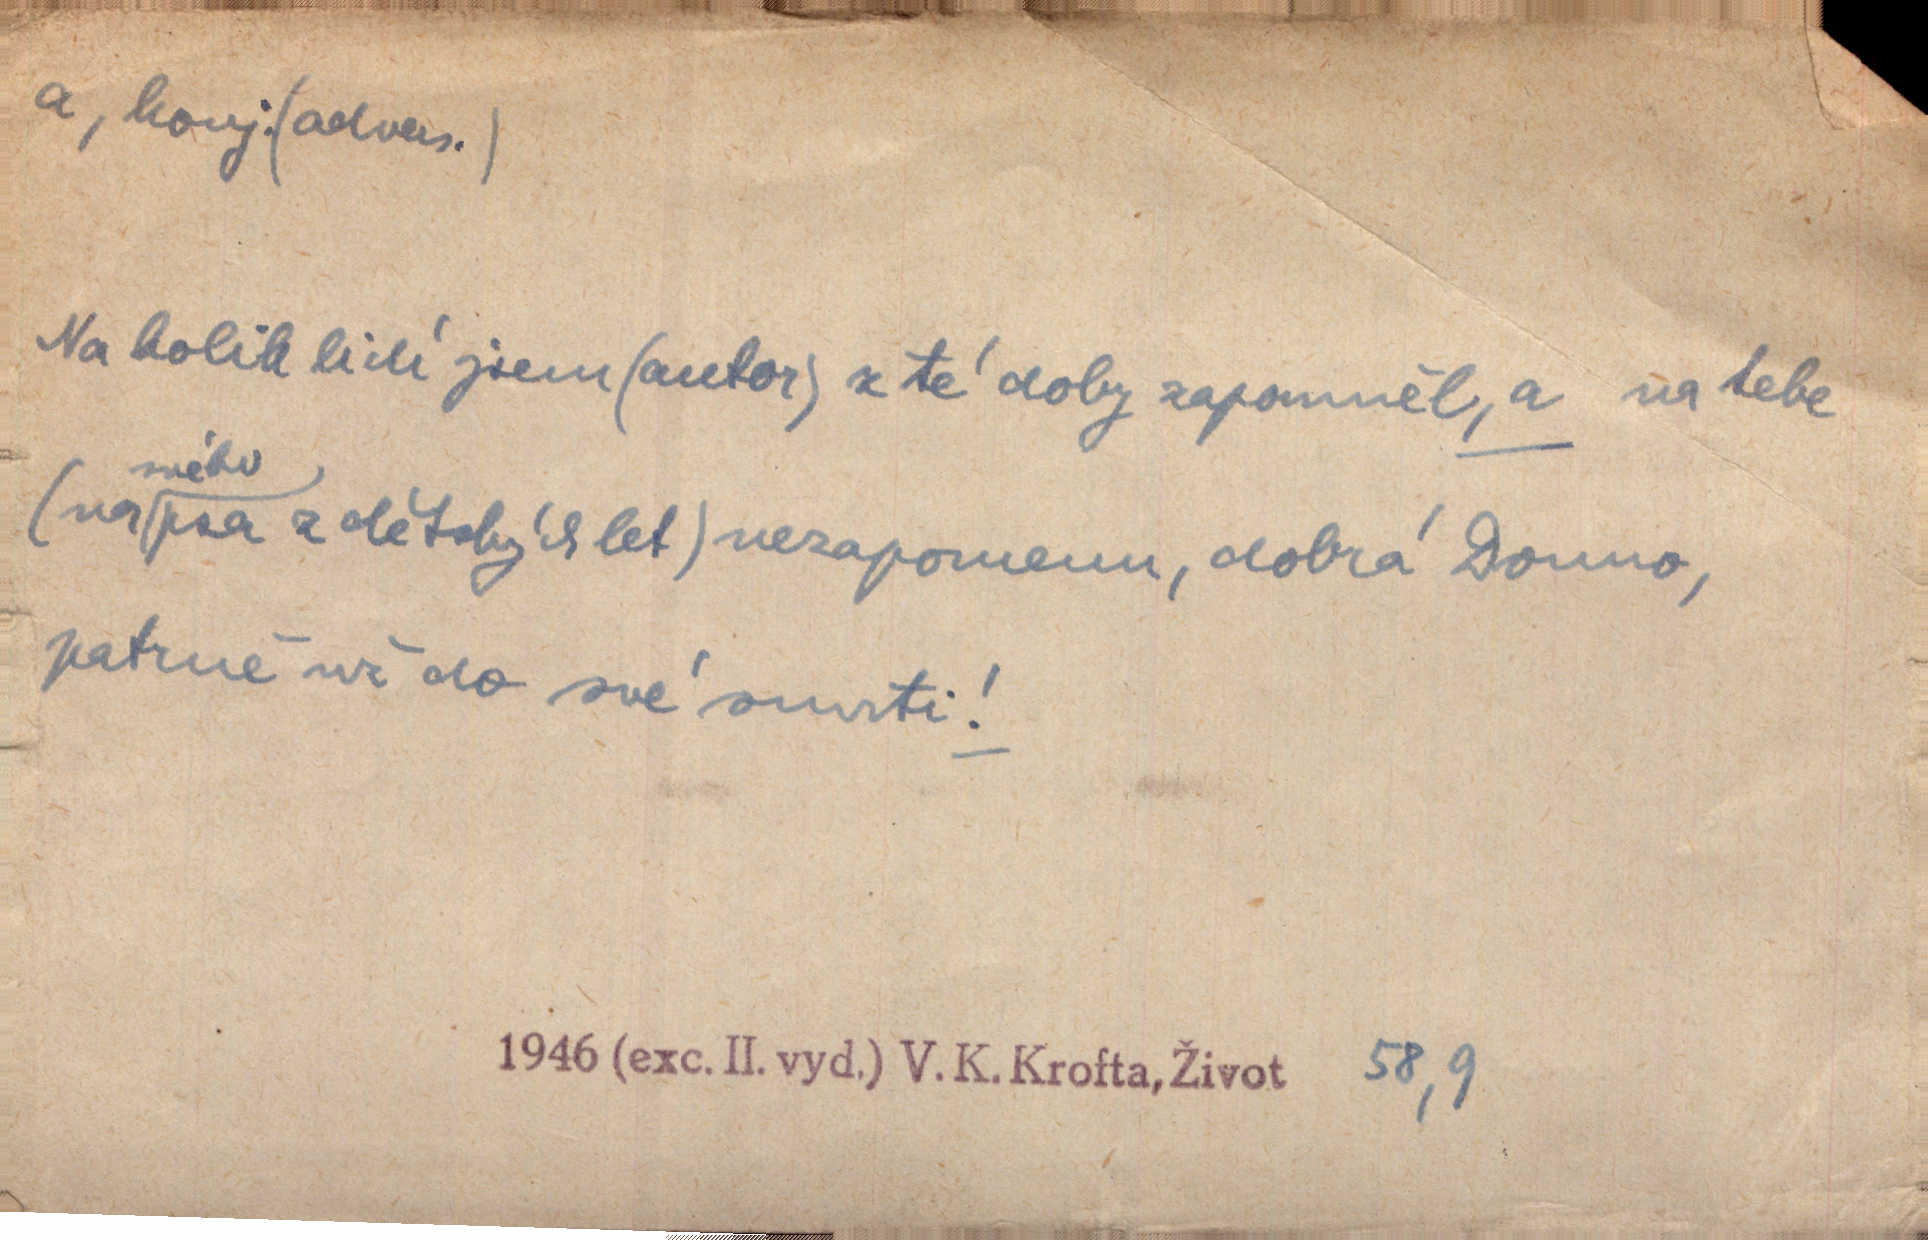 a, konj. (advers.)
Na kolik lidí jsem (autor) z té doby zapomněl, a na tebe
svého
(na psa z dětských let) nezapomenu, dobrá Donno,
patrně už do své smrti!
1946 (exc. II. vyd.) V. K. Krofta, Život 58,9